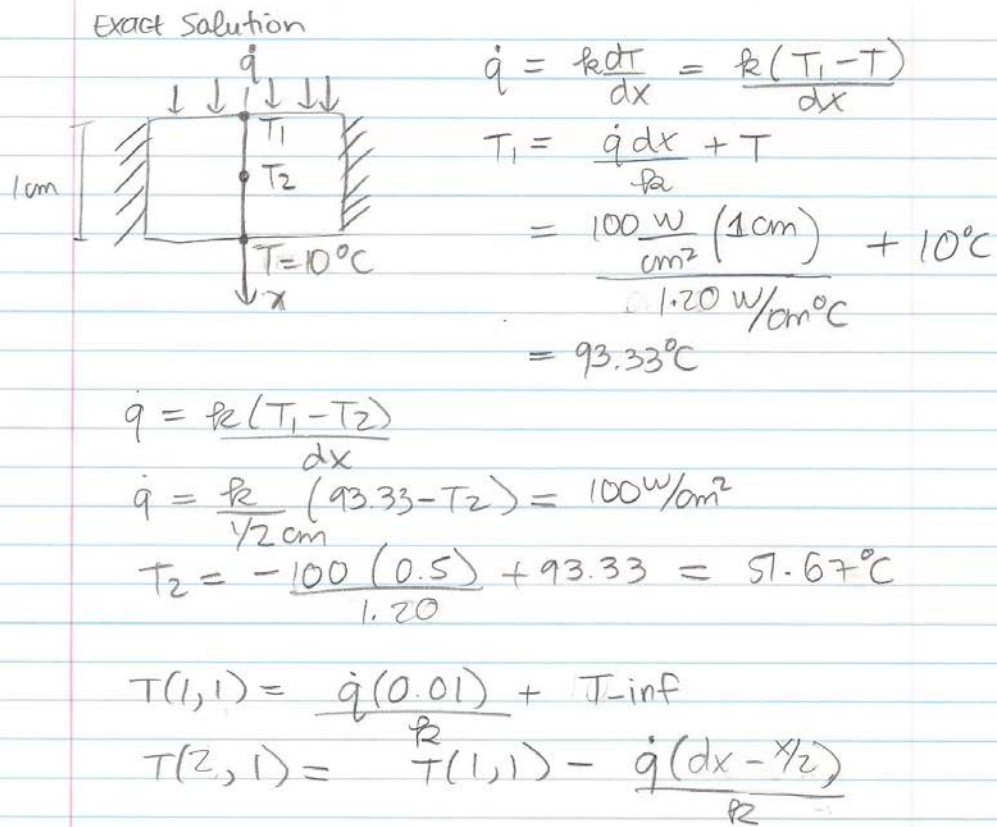 Exact Solution
q̇
T1
T2
1cm
T=10°C
x
q̇ = k dT/dx = k(T1-T)/dx
T1 = q̇ dx/k + T
= 100 W/cm² (1cm) / 1.20 W/cm°C + 10°C
= 93.33°C
q̇ = k(T1-T2)/dx
q̇ = k/(1/2 cm) (93.33-T2) = 100 W/cm²
T2 = -100 (0.5)/1.20 + 93.33 = 51.67°C
T(1,1) = q̇(0.01)/k + T-inf
T(2,1) = T(1,1) - q̇(dx - x/2)/k